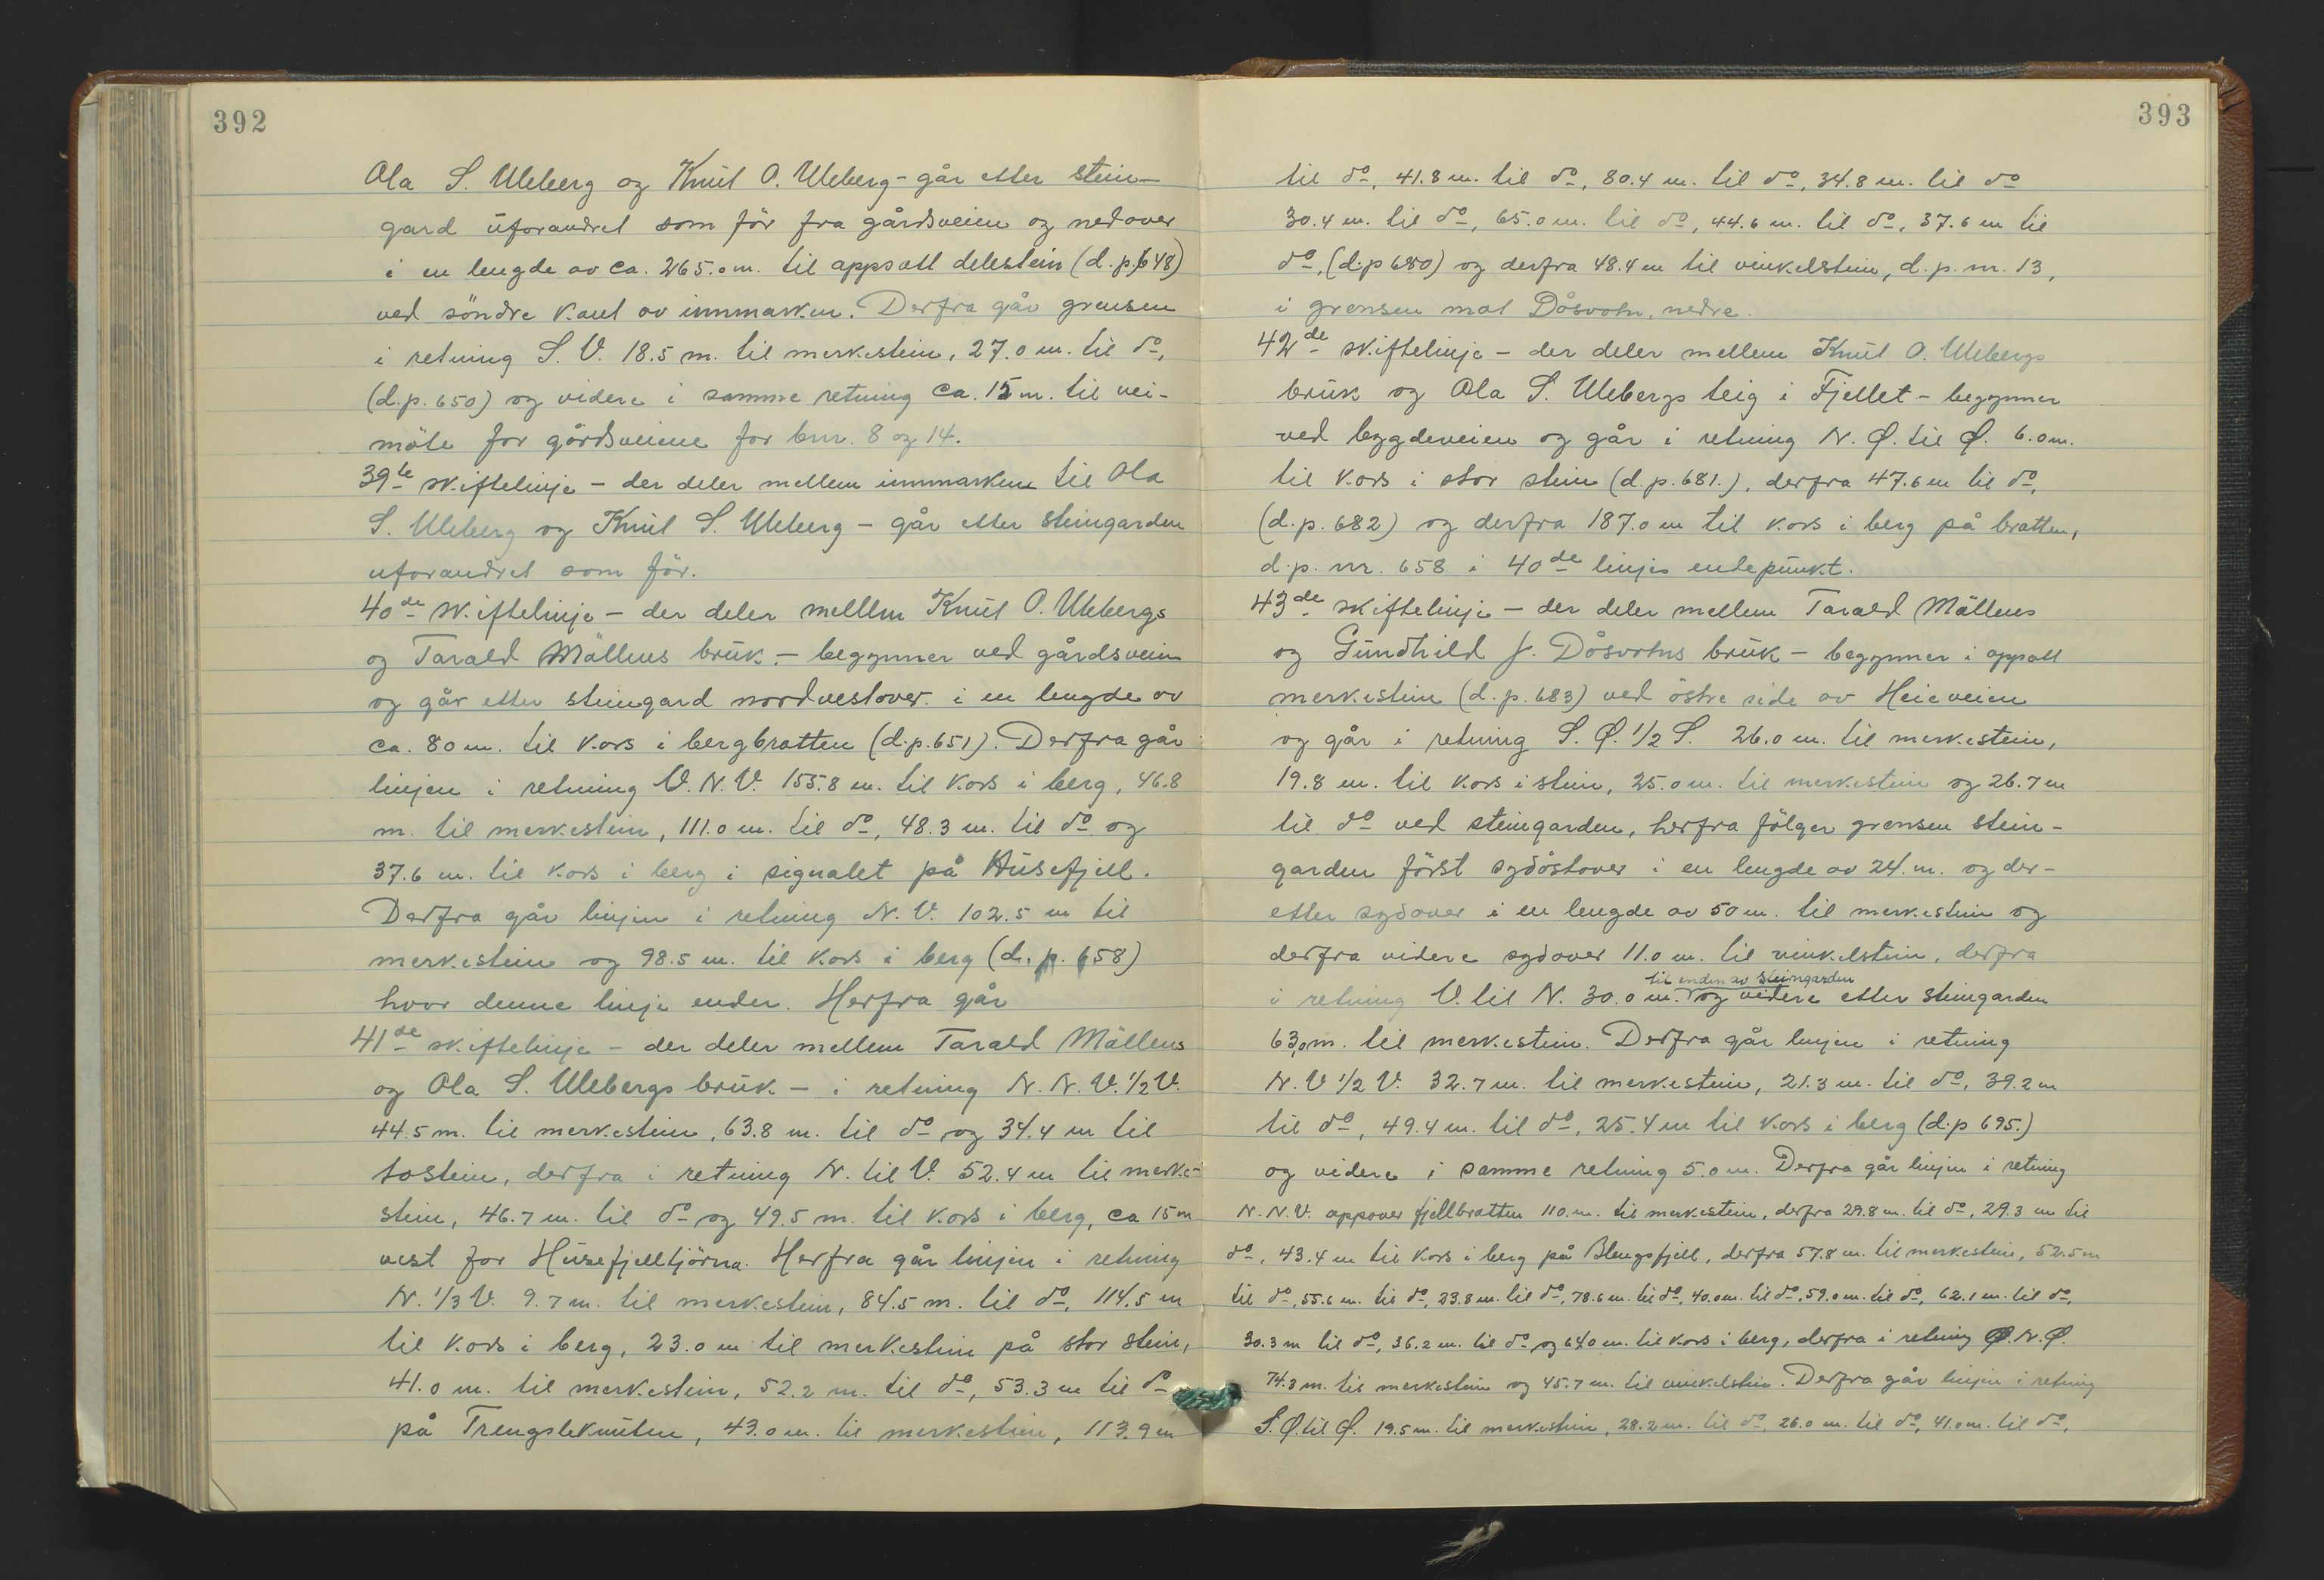 392
Ola S. Uleberg og Knut O. Uleberg - går etter stein-
gard uforandret som för fra gårdsveien og nedover
i en lengde av ca. 265.0 m. til oppsatt delestein (d.p. 648)
ved söndre kant av innmarken. Derfra går grensen
i retning S.V. 18.5 m. til merkestein, 27.0 m. til do,
(d.p. 650) og videre i samme retning ca. 15 m. til vei-
möte for gårdsveiene for bnr. 8 og 14.
39te skiftelinje - der deler mellem innmarken til Ola
S. Uleberg og Knut S. Uleberg - går etter steingarden
uforandret som för.
40de skiftelinje - der deler mellem Knut O. Ulebergs
og Tarald Mållens bruk - begynner ved gårdsvein
og går etter steingard nordvestover i en lengde av
ca. 80 m. til kors i bergbratten (d.p. 651). Derfra går
linjen i retning V.N.V. 155.8 m. til kors i berg, 46.8
m. til merkestein, 111.0 m. til do, 48.3 m. til do og
37.6 m. til kors i berg i signalet på Husefjell.
Derfra går linjen i retning N.V. 102.5 m til
merkestein og 98.5 m. til kors i berg (d. p. 658)
hvor denne linje ender. Herfra går
41de skiftelinje - der deler mellem Tarald Mållens
og Ola S. Ulebergs bruk - i retning N.N.V. 1/2 V.
44.5 m. til merkestein, 63.8 m. til do og 34.4 m til
tostein, derfra i retning N. til V. 52.4 m til merke-
stein, 46.7 m. til do og 49.5 m. til kors i berg, ca 15 m
vest for Husefjelltjörna. Herfra går linjen i retning
N. 1/3 V. 9.7 m. til merkestein, 84.5 m. til do, 114.5 m
til kors i berg, 23.0 m til merkestein på stor stein,
41.0 m. til merkestein, 52.2 m. til do, 53.3 m til do
på Trengsleknuten, 43.0 m. til merkestein, 113.9 m
393
til do, 41.8 m. til do, 80.4 m. til do, 34.8 m. til do
30.4 m. til do, 65.0 m. til do, 44.6 m. til do, 37.6 m til
do, (d.p 680) og derfra 48.4 m til vinkelstein, d.p. nr. 13,
i grensen mot Dåsvatn, nedre.
42de skiftelinje - der deler mellem Knut O. Ulebergs
bruk og Ola S. Ulebergs teig i Fjellet - begynner
ved bygdeveien og går i retning N.Ø. til Ø. 6.0 m.
til kors i stor stein (d.p. 681.), derfra 47.6 m til do,
(d.p. 682) og derfra 187.0 m til kors i berg på bratten,
d.p. nr. 658 i 40de linjes endepunkt.
43de skiftelinje - der deler mellem Tarald Mållens
og Gundhild J. Dåsvatns bruk - begynner i oppsatt
merkestein (d.p. 683) ved östre side av Heieveien
og går i retning S.Ø. 1/2 S. 26.0 m. til merkestein,
19.8 m. til kors i stein, 25.0 m. til merkestein og 26.7 m
til do ved steingarden, herfra fölger grensen stein-
garden först sydöstover i en lengde av 24. m. og der-
etter sydover i en lengde av 50 m. til merkestein og
derfra videre sydover 11.0 m. til vinkelstein, derfra
til enden av steingarden
i retning V. til N. 30.0 m. og videre etter steingarden
63,0 m. til merkestein. Derfra går linjen i retning
N.V 1/2 V. 32.7 m. til merkestein, 21.3 m. til do, 39.2 m
til do, 49.4 m. til do, 25.4 m til kors i berg (d.p 695.)
og videre i samme retning 5.0 m. Derfra går linjen i retning
N.N.V. oppover fjellbratten 110. m. til merkestein, derfra 29.8 m. til do, 29.3 m til
do, 43.4 m til kors i berg på Blengsfjell, derfra 57.8 m. til merkestein, 52.5 m
til do, 55.6 m. til do, 23.8 m. til do, 78.6 m. til do, 40.0 m. til do, 59.0 m. til do, 62.1 m. til do,
30.3 m til do, 36.2 m. til do og 64.0 m. til kors i berg, derfra i retning Ø.N.Ø.
74.3 m. til merkestein og 45.7 m. til vinkelstein. Derfra går linjen i retning
S.Ø. til Ø. 19.5 m. til merkestein, 28.2 m. til do, 26.0 m. til do, 41.0 m. til do,